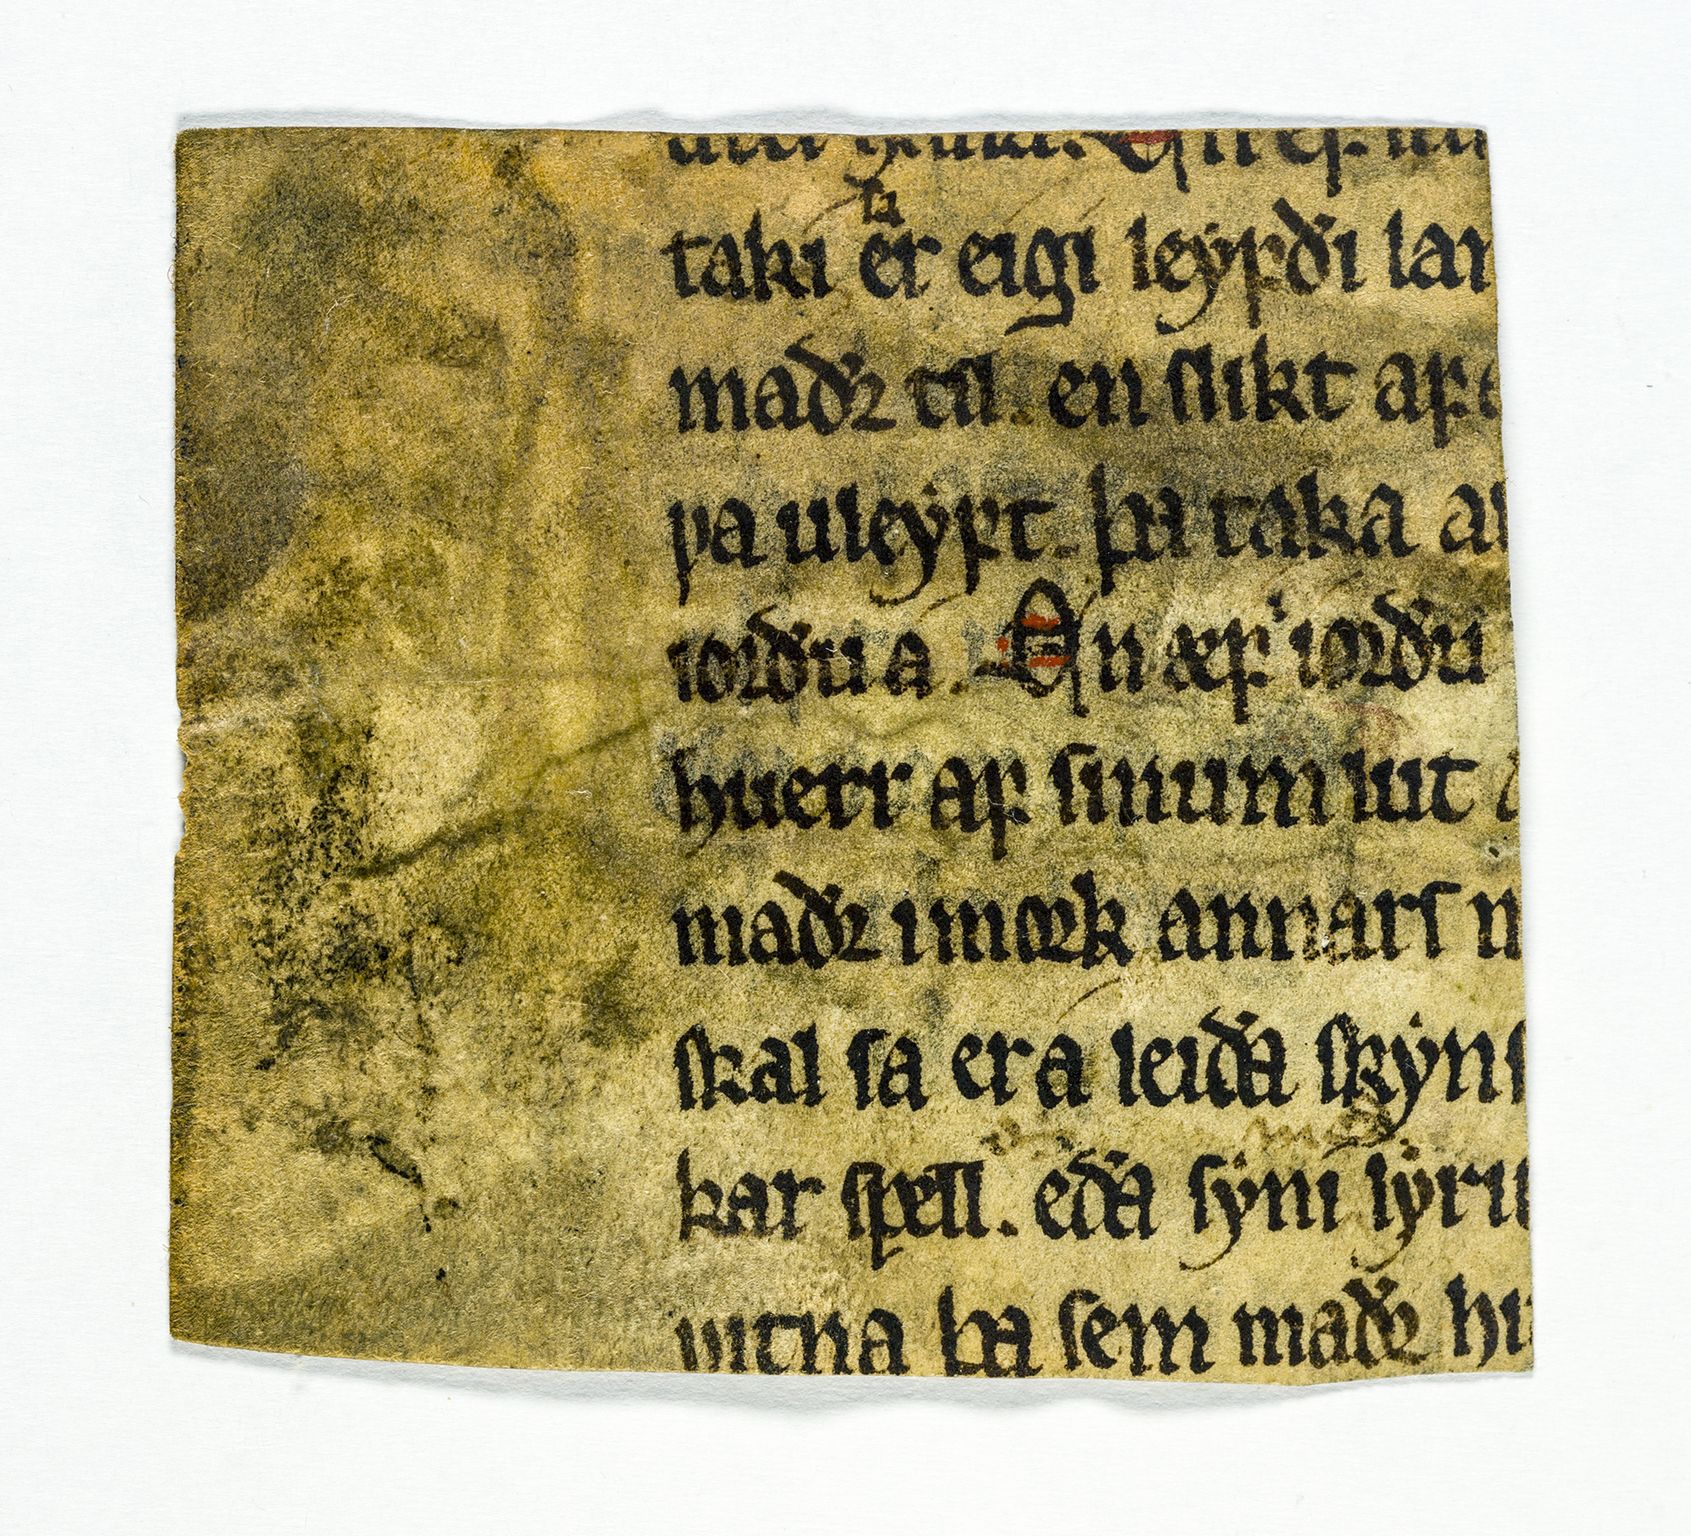 En ef
taki er sa eigi leyfði lan
maðr til. en slikt af e
ya uleyft. þa taka a
iorðu a. En æf iorðu
huerr af sinum lut
maðr i mork annars m
skal sa er a leiða skyns
kar spell. eða syni syru
uitna þa sem maðr hu